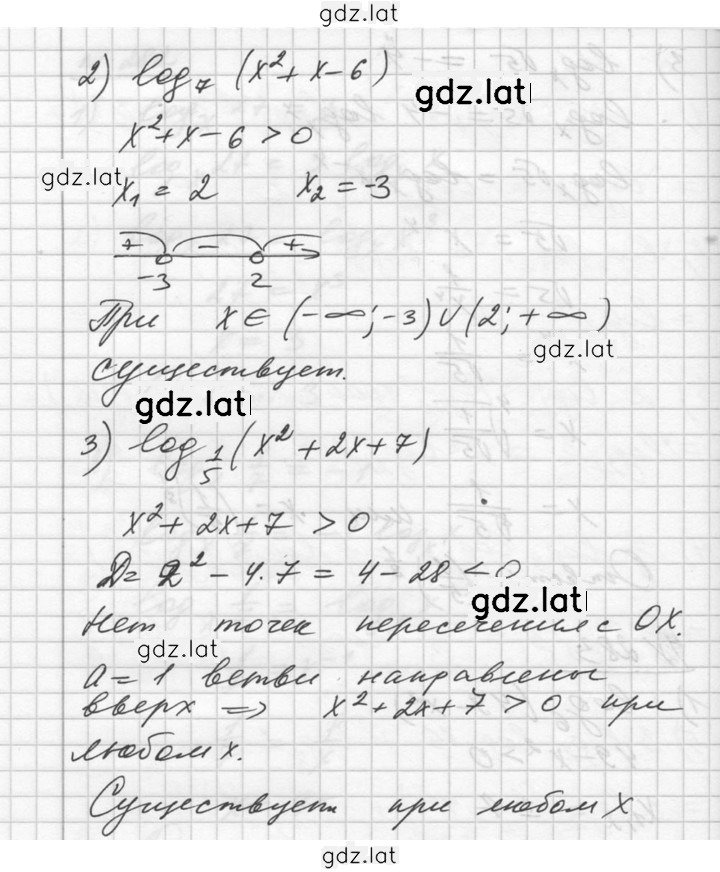 gdz.lat
2) log₇ (x² + x – 6)
gdz.lat
x² + x – 6 > 0
gdz.lat
x₁ = 2 x₂ = –3
+ – +
–3 2
При x ∈ (–∞; –3) ∪ (2; +∞)
gdz.lat
существует.
gdz.lat
3) log_{1/5} (x² + 2x + 7)
x² + 2x + 7 > 0
D = 2² – 4·7 = 4 – 28 < 0
gdz.lat
Нет точек пересечения с OX.
gdz.lat
a = 1 ветви направлены
вверх => x² + 2x + 7 > 0 при
любом x.
Существует при любом x
gdz.lat